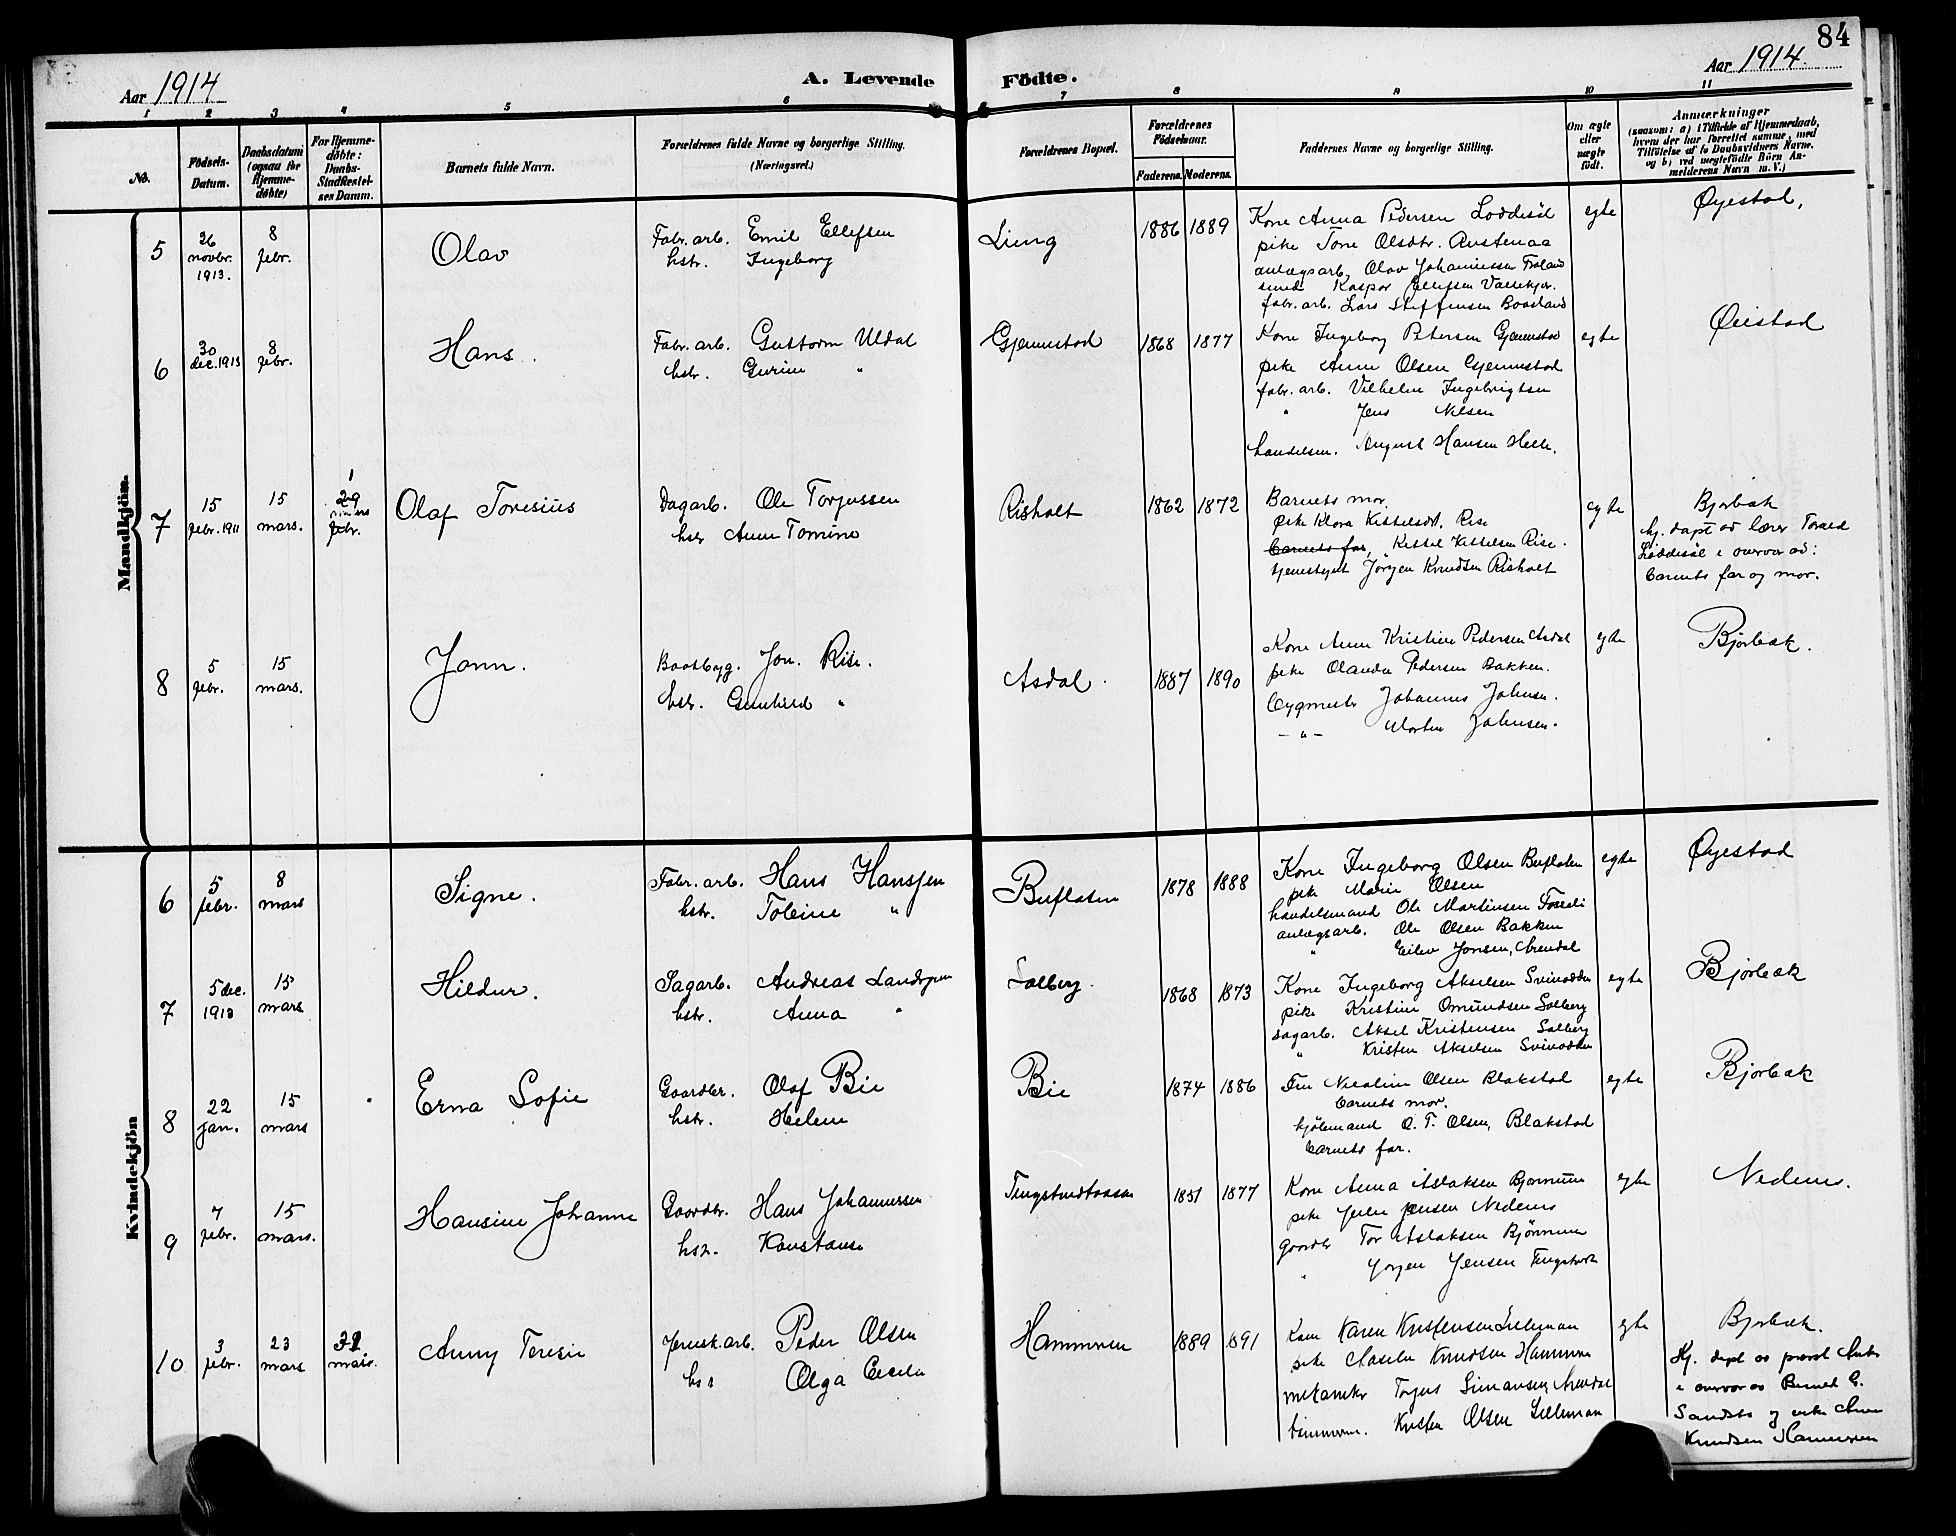 84
Aar 1914
A. Levende Födte.
Aar 1914
1 2 3 4 5 6 6 7 8 9 10 11
No.
Födsels-Datum.
Daabsdatum (ogsaa for Hjemme-döbte)
For Hjemme-döbte: Daabs-Stadfæstel-ses Datum.
Barnets fulde Navn.
Forældrenes fulde Navne og borgerlige Stilling. (Næringsvei.)
Forældrenes Bopæl.
Forældrenes Födselsaar.
Faderens. Moderens.
Faddernes Navne og borgerlige Stilling.
Om ægte eller uægte födt.
Anmærkninger
(saasom: a) i Tilfælde af Hjemmedaab,
hvem der har forrettet samme, med
Tilföielse af to Daabsvidners Navne.
og b) ved uægtefödte Börn An-
melderens Navn m. V.)
Mandkjön.
5
26 novbr. 1913.
8 febr.
Olav
Fabr. arb. Emil Ellefsen
hstr. Ingeborg
Ljung
1886 1889
Kone Anna Pedersen Løddesöl
pike Tone Olsdtr. Austenaa
anlægsarb. Olav Johannessen Froland
smed Kaspar Ellefsen Vassekjær.
fabr. arb. Lars Steffensen Boasland
egte
Øyestad,
6
30 dec. 1913
8 febr.
Hans.
Fabr. arb. Guttorm Uldal
hstr. Gurine "
Gjennestad
1868 1877
Kone Ingeborg Petersen Gjennestad
pike Anne Olsen Gjennestad
fabr. arb. Vilhelm Ingebrigtsen
" Jens Nilsen
handelsm. August Hansen Helle.
egte
Øiestad
7
15 febr. 1911
15 mars.
1
29
febr.
Olaf Toresius
Dagarb. Ole Torjussen
hstr Anne Tomine
Risholt
1862 1872
Barnets mor
pike Klara Kittelsdt. Rise
barnets far, Kittel Kittelsen Rise.
tjenestegut Jörgen Knudsen Risholt
egte
Bjorbæk
hj. døpt av lærer Toraed
Løddesöl i overvær av:
barnets far og mor.
8
5 febr.
15 mars.
Jonn.
Baadbyg. Jon. Rise.
hstr. Gunhild "
Asdal.
1887 1890
Kone Anne Kristine Pedersen Asdal
pike Olanda Pedersen Bakken.
bygmestr Johannes Johnsen.
- " - Morten Johnsen.
egte
Bjorbæk.
Kvindekjön
6
5 febr.
8 mars
Signe.
Fabr. arb. Hans Hansjen
hstr. Toleine "
Buflaten
1878 1888
Kone Ingeborg Olsen Buflaten
pike Marie Olsen
handelsmand Ole Martinsen
anlægsarb. Ole Olsen Bakken
" Eilev Jonsen, Arendal
egte
Øyestad
7
5 dec. 1913
15 mars
Hildur.
Sagarb. Andreas
hstr. Anna "
Solberg.
1868 1873
Kone Ingeborg Akselsen Svinodden
pike Kristine Omundsen Solberg
sagarb. Aksel Kristensen Solberg
" Kristen Akselsen Svinodden
egte
Bjorbæk
8
22 jan.
15 mars
Erna Sofie
Gaardbr. Olaf Bie
hstr. Helene
Bie
1874 1886
Fru Nicoline Olsen Blakstad
barnets mor.
kjöbmand O. T. Olsen, Blakstad
barnets far.
egte
Bjorbæk
9
7 febr.
15 mars.
Hansine Johanne
Gaardbr. Hans Johannessen
hstr. Konstanse
1851 1877
Kone Anna Aslaksen Bjornnes
pike Jensen Nedenes
gaardbr Tor Aslaksen Bjørnnes
" Jörgen Jensen
egte
Nedenes.
10
3 febr.
23 mars
mars.
Anny Teresie
Jernsk. arb. Peder Olsen
hstr Olga Cecilie
Hammeren
1889 1891
Kone Karen Kristensen Lilleman
pike Aaselie Knudsen Hammeren
mekaniker Torjus Simonsen, Arendal
tömmerm. Kristen Olsen Lilleman
egte
Bjorbæk.
Hj. døpt av prost
i overvær av Bernt G.
Sandsto og enke Anne
Knudsen Hammeren